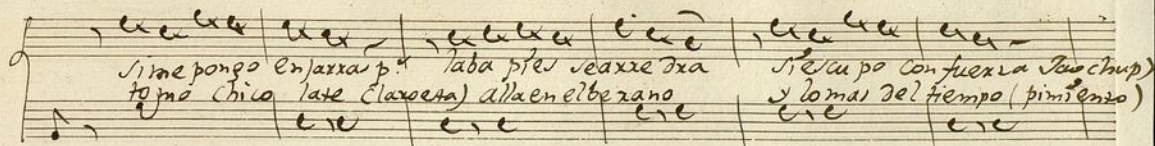 si me pongo en jarras p.r laba pies se arredra si escupo con fuerza Jao chup)
tomo chico late (laroeta) alla en el berano y lo mas del tiempo (pimiento)